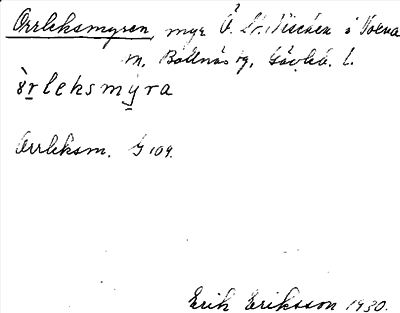 Orrleksmyren, myr Ö. St. i Voxna
m, Bollnäs tg, Gävleb. l.
òrleksmýra
Orrleksm. G 109.
Erik Eriksson 1930.